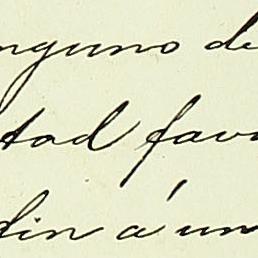 nguno de
tad fav
din á un